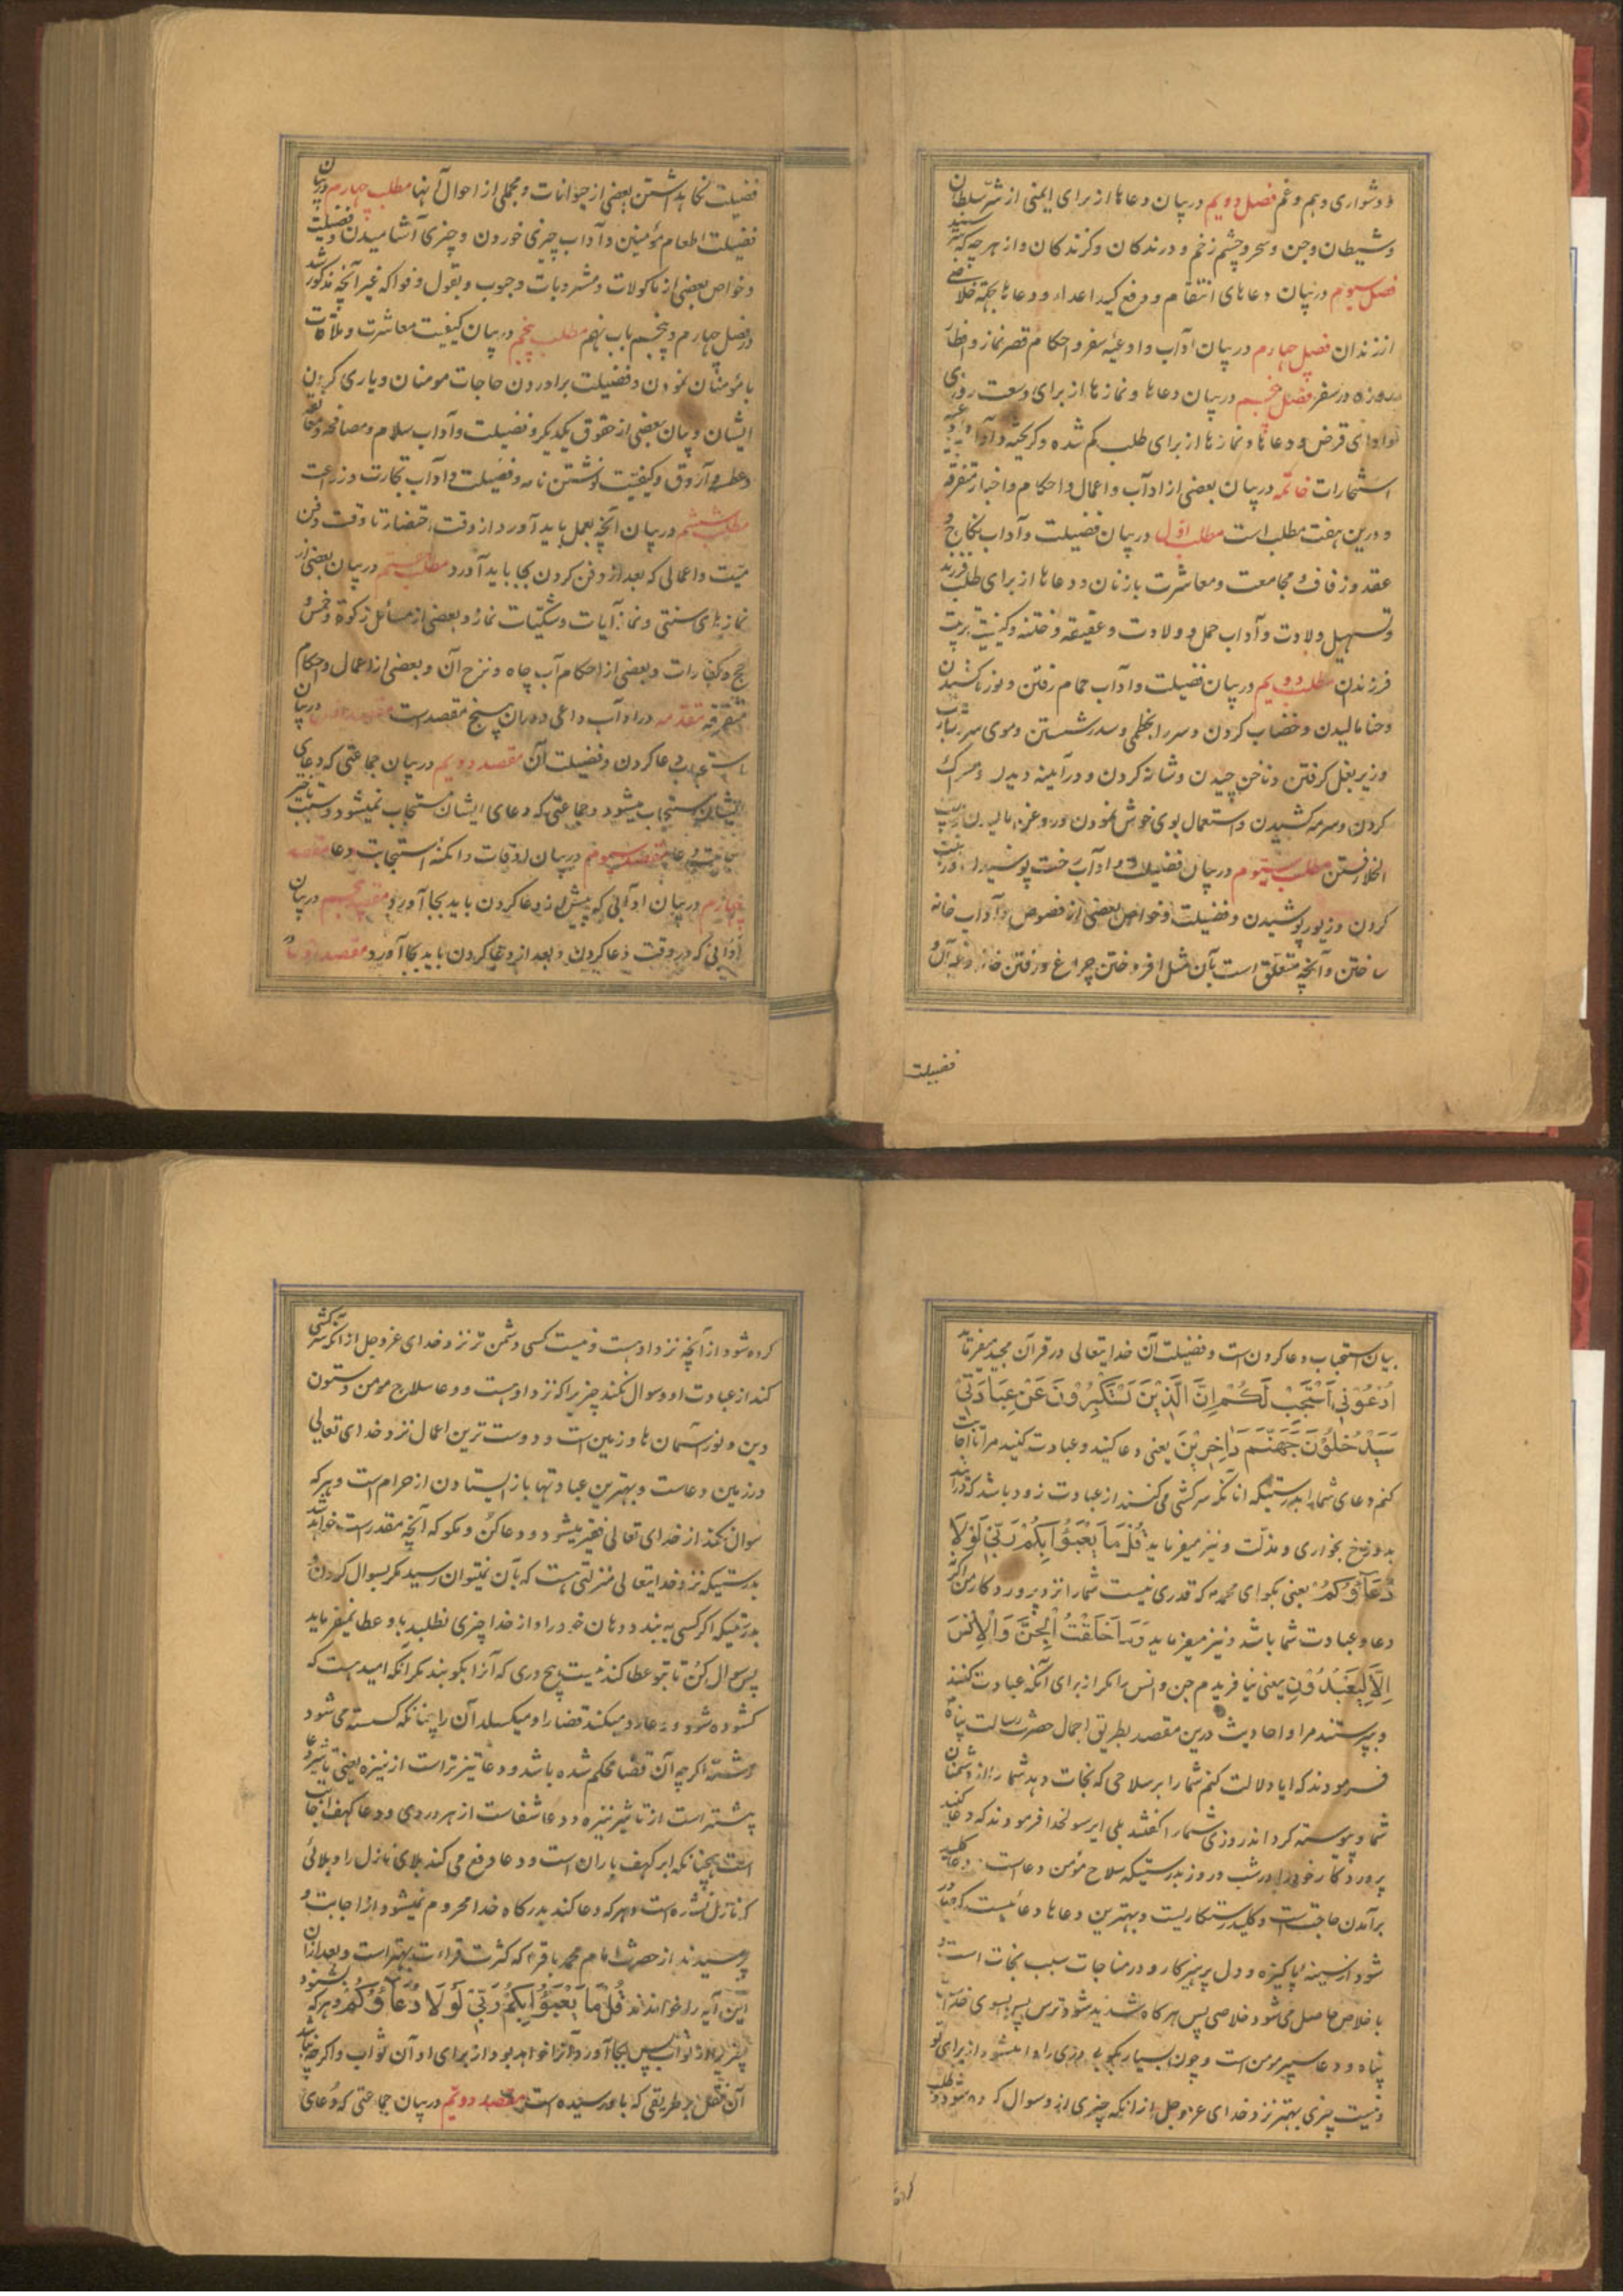 و دشواری و هم و غم فصل دویم در بیان دعاها از برای ایمنی از شر سلطان
و شیطان و جن و سحر و چشم زخم و درندکان و کزندکان و از هر چه که بترسند
فصل سیوم در بیان دعاهای انتقام و رفع کید اعداء و دعاها بجهة خلاصی
از زندان فصل چهارم در بیان آداب و ادعیهٔ سفر و احکام قصر نماز و افطار
روزه در سفر فصل پنجم در بیان دعاها و نمازها از برای وسعت روزی
و ادای قرض و دعاها و نمازها از برای طلب کم شده و کریخته و آداب
استخارات خاتمه در بیان بعضی از اداب و اعمال و احکام و اخبار متفرقه
و درین هفت مطلب است مطلب اول در بیان فضیلت و آداب نکاح و
عقد و زفاف و مجامعت و معاشرت با زنان و دعاها از برای طلب فرزند
و تسهیل ولادت و آداب حمل و ولادت و عقیقه و ختنه و کیفیت تربیت
فرزندان مطلب دویم در بیان فضیلت و آداب حمام رفتن و نوره کشیدن
و حنا مالیدن و خضاب کردن و سر را بخطمی و سدر شستن و موی سر و شارب
و زیر بغل کرفتن و ناخن چیدن و شانه کردن و در آینه دیدن و مسواک
کردن و سرمه کشیدن و استعمال بوی خوش نمودن و روغن مالیدن
الخلا رفتن مطلب سیوم در بیان فضیلت و اداب رخت پوشیدن و زینت
کردن و زیور پوشیدن و فضیلت و خواص بعضی از فصوص و آداب خانه
ساختن و آنچه متعلق است بآن مثل افروختن چراغ و رفتن خانه و غیر آن و
فضیلت
فضیلت نکاهداشتن بعضی از حیوانات و مجملی از احوال آنها مطلب چهارم در بیان
فضیلت اطعام مؤمنین و آداب چیزی خوردن و چیزی آشامیدن و فضیلت
و خواص بعضی از ماکولات و مشروبات و حبوب و بقول و فواکه غیر آنچه مذکور شد
در فصل چهارم و پنجم باب نهم مطلب پنجم در بیان کیفیت معاشرت و ملاقات
با مؤمنان نمودن و فضیلت براوردن حاجات مومنان و یاری کردن
ایشان و بیان بعضی از حقوق یکدیکر و فضیلت و آداب سلام و مصافحه و معانقه
و عطسه و آروق و کیفیت نوشتن نامه و فضیلت و اداب تجارت و زراعت
مطلب ششم در بیان آنچه بعمل باید آورد از وقت احتضار تا وقت دفن
میت و اعمالی که بعد از دفن کردن بجا باید آورد مطلب هفتم در بیان بعضی از
نمازهای سنتی و نماز آیات و شکیات نماز و بعضی از مسائل زکوة و خمس و
حج و کفارات و بعضی از احکام آب چاه و نزح آن و بعضی از اعمال و احکام
متفرقه مقدمه در اداب داعی و دران پنج مقصد است مقصد اول در بیان
استحباب دعا کردن و فضیلت آن مقصد دویم در بیان جماعتی که دعای
ایشان مستجاب میشود و جماعتی که دعای ایشان مستجاب نمیشود و سبب تاخیر
مقصد سیوم در بیان اوقات و امکنهٔ استجابت دعا مقصد
چهارم در بیان ادابی که پیش از دعا کردن باید بجا آورد مقصد پنجم در بیان
آدابی که در وقت دعا کردن و بعد از دعا کردن باید بجا آورد مقصد اول در
بیان استحباب دعا کردن است و فضیلت آن خدایتعالی در قرآن مجید میفرماید
اُدْعُونِی اَسْتَجِبْ لَکُمْ اِنَّ الَّذِینَ یَسْتَکْبِرُونَ عَنْ عِبَادَتِی
سَیَدْخُلُونَ جَهَنَّمَ دَاخِرِینَ یعنی دعا کنید و عبادت کنید مرا تا اجابت
کنم دعای شما را بدرستیکه انانکه سرکشی می کنند از عبادت زود باشد که درآیند
بدوزخ بخواری و مذلت و نیز میفرماید قُلْ مَا یَعْبَؤُا بِکُمْ رَبِّی لَوْلَا
دُعَاؤُکُمْ یعنی بکو ای محمد که قدری نیست شما را نزد پروردکار من اکر نه
دعا و عبادت شما باشد و نیز میفرماید وَمَا خَلَقْتُ الْجِنَّ وَالْاِنْسَ
اِلَّا لِیَعْبُدُونِ یعنی نیافریدم جن و انس را مکر از برای آنکه عبادت کنند
و بپرستند مرا و احادیث درین مقصد بطریق اجمال حضرت رسالت پناه
فرمودند که ایا دلالت کنم شما را بر سلاحی که نجات دهد شما را از دشمنان
شما و پیوسته کرداند روزی شما را کفتند بلی ایرسولخدا فرمودند که دعا کنید
پروردکار خود را در شب و روز بدرستیکه سلاح مؤمن دعاست و دعا کلید
برآمدن حاجتست و کلید رستکاریست و بهترین دعاها دعائیست که صادر
شود از سینهٔ پاکیزه و دل پرهیزکار و در مناجات سبب نجات است و
باخلاص حاصل می شود خلاصی پس هرکاه شدید شود ترس پس بسوی خداست
پناه و دعا سپر مومن است و چون بسیار بکوبی دری را وا میشود از برای تو
و نیست چیزی بهتر نزد خدای عز و جل از انکه چیزی از و سوال کرده شود و طلب
کرده شود از آنچه نزد اوست و نیست کسی دشمن تر نزد خدای عز و جل از آنکه سرکشی
کند از عبادت او و سوال نکند چیزی را که نزد اوست و دعا سلاح مومن و ستون
دین و نور آسمان ها و زمین است و دوست ترین اعمال نزد خدای تعالی
در زمین دعاست و بهترین عبادتها باز ایستادن از حرام است و هر که
سوال نکند از خدای تعالی فقیر میشود و دعا کن و مکو که آنچه مقدر است خواهد شد
بدرستیکه نزد خدایتعالی منزلتی هست که بآن نمیتوان رسید مکر بسوال کردن و
بدرستیکه اکر کسی به بندد دهان خود را و از خدا چیزی نطلبد باو عطا نمیفرماید
پس سوال کن تا بتو عطا کند نیست هیچ دری که آنرا بکوبند مکر آنکه امید هست که
کشوده شود و دعا رد میکند قضا را و میکسلد آن را چنانکه کسسته می شود
رشته اکر چه آن قضا محکم شده باشد و دعا تیزتر است از نیزه یعنی تاثیر دعا
بیشتر است از تاثیر نیزه و دعا شفاست از هر دردی و دعا کهف اجابت
است چنانکه ابر کهف باران است و دعا دفع می کند بلای نازل را و بلائی
که نازل نشده است و هر که دعا کند بدرکاه خدا محروم نمیشود از اجابت و
پرسیدند از حضرت امام محمد باقر که کثرت قراءت بهتر است و بعد از آن
این آیه را خواندند قُلْ مَا یَعْبَؤُا بِکُمْ رَبِّی لَوْلَا دُعَاؤُکُمْ و هر که بشنود
چیزی از ثواب پس بجا آورد آنرا خواهد بود از برای او آن ثواب و اکر چه نباشد
آن فعل بر طریقی که باو رسیده است مقصد دویم در بیان جماعتی که دعای